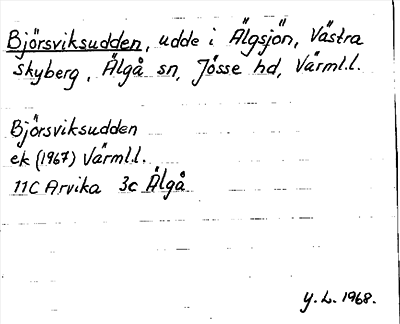 Björsviksudden, udde i Älgsjön, Västra
Skyberg, Älgå sn, Jösse hd, Värml.l.
Björsviksudden
ek (1967) Värml.l.
11C Arvika 3c Älgå
Y. L. 1968.